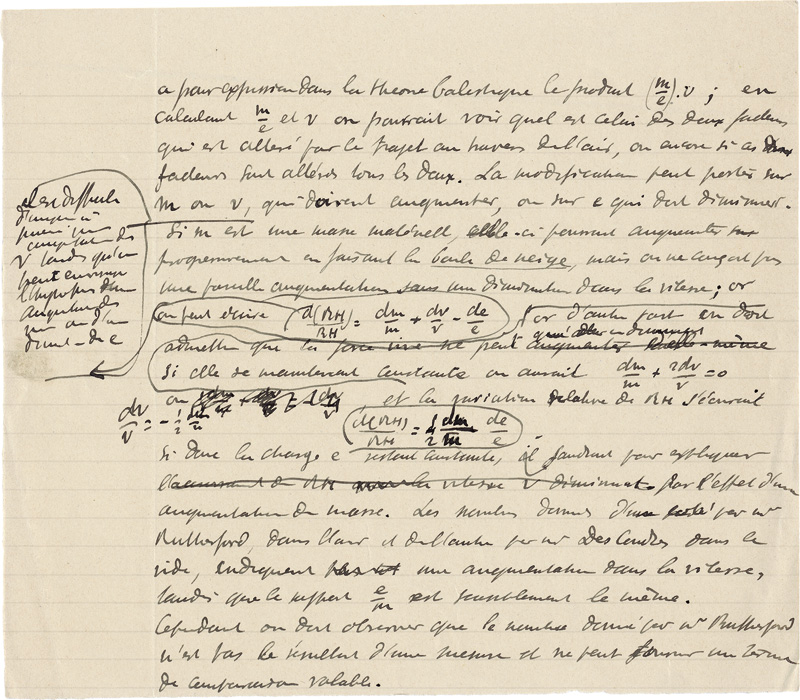 a pour expression dans la théorie balistique le produit (m/e).v ; en
calculant m/e et v on pourrait voir quel est celui des deux facteurs
qui est altéré par le trajet au travers de l'air, ou encore si ces deux
facteurs sont altérés tous les deux. La modification peut porter sur
m ou v, qui doivent augmenter, ou sur e qui doit diminuer.
Si m est une masse matérielle, celle-ci pourrait augmenter
progressivement en faisant la boule de neige, mais on ne conçoit pas
une pareille augmentation sans une diminution dans la vitesse ; or
on peut écrire d(RH)/RH = dm/m + dv/v - de/e or d'autre part on doit
qu'elle
admettre que la force vive ne peut augmenter elle-même
Si elle demeurait constante on aurait dm/m + 2dv/v = 0
ou et la variation relative de RH s'écrirait
dv/v = - 1/2 dm/m
d(RH)/RH = 1/2 dm/m de/e
Si donc la charge e restant constante, il faudrait pour expliquer
l' de RH la vitesse v diminuât par l'effet d'une
augmentation de masse. Les nombres donnés d'un côté par Mr
Rutherford, dans l'air et de l'autre par Mr Des Coudres dans le
vide, indiquent une augmentation dans la vitesse,
tandis que le rapport e/m est sensiblement le même.
Cependant on doit observer que le nombre donné par Mr Rutherford
n'est pas le résultat d'une mesure et ne peut fournir un terme
de comparaison valable.
Il est difficile
d'imaginer
augmentation de
v tandis qu'on
peut envisager
l'hypothèse d'une
augmentation de
m ou d'une
dimin- de e